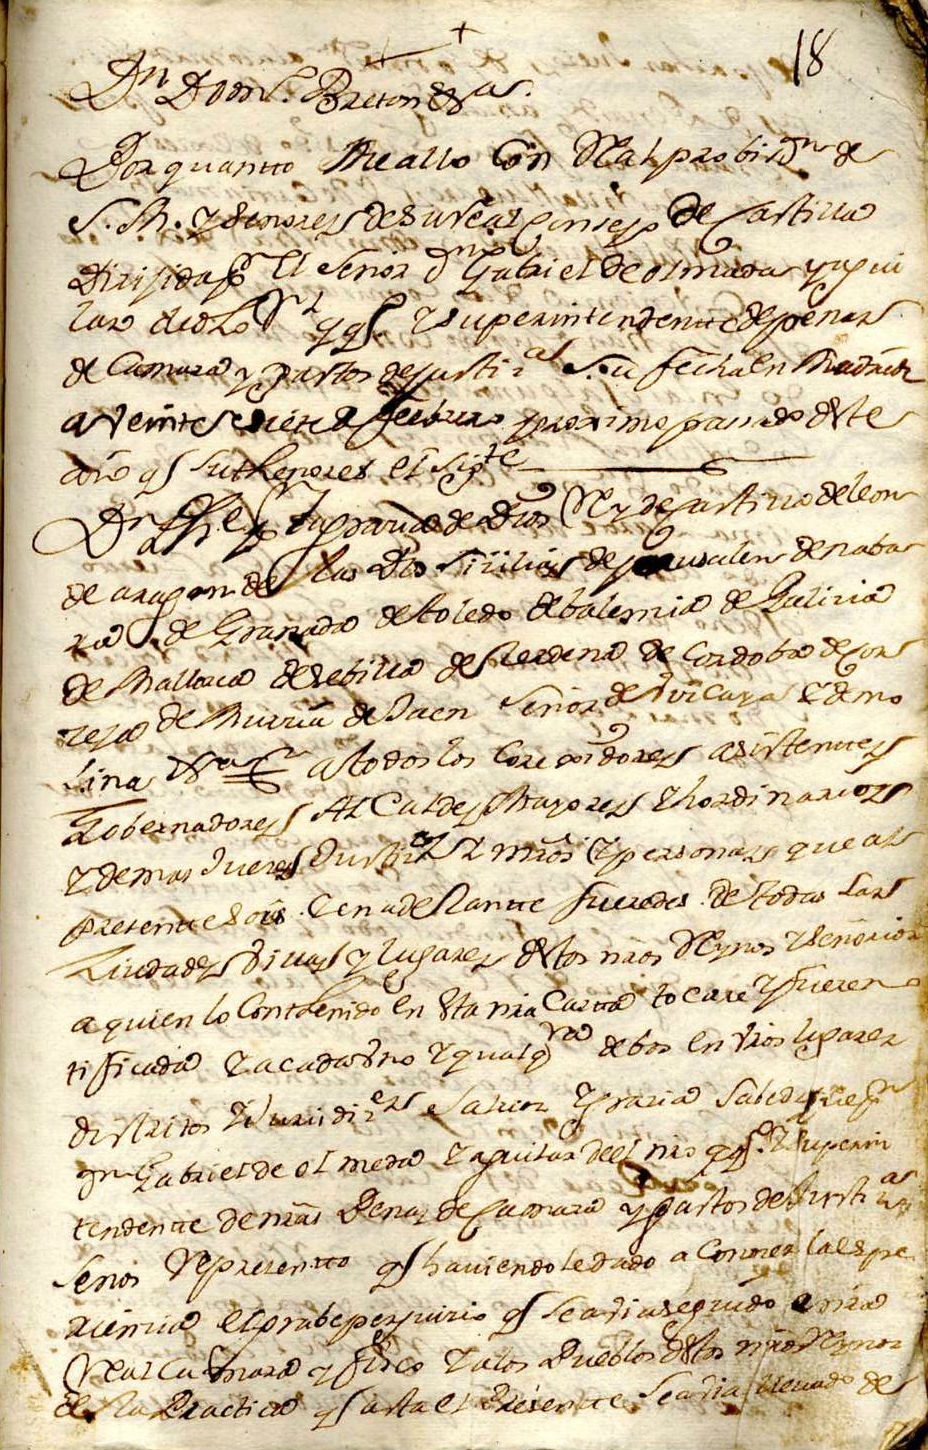 18
Dn Domo. Breton &a.
Por quantto Me allo Con Real probision de
S. M. y señores de su real Consejo de Castilla
dirijida pr el señor Dn Gabriel de olmeda y aguilar
y superintendente de penas
de Camara y gastos de justias. su fecha en Madrid
a Veinte y siete de febrero proximo pasado deste
año q su thenor es el sigte
Dn Phelipe por la gracia de Dios Rey de Castilla de leon
de aragon de las dos sizilias de jerusalen de nabar
ra de Granada de toledo de balencia de Galicia
de Mallorca de sebilla de Zerdena de Cordoba de Cor
zega de Murcia de Jaen señor de Vizcaya y de mo
lina &a a todos los Corregidores asistentes
Gobernadores Alcaldes Mayores y hordinarios
y demas Jueces Justias y personas que al
presente sois y en adelante fueredes de todas las
Ziudades villas y lugares destos nros Reynos y señorios
a quien lo Conthenido en esta nra Carta tocare y fuere no
tificada y a cada Uno y qualqra de bos en vros lugares
distritos y Juridizes salud y gracia Sabed q
Dn Gabriel de olmeda y aguilar del nro y superin
tendente de nras Penas de Camara y gastos de Justias
Nos Represento q haviendo le dado a Conocer la espe
riencia el grabe perjuicio q se a seguido a nra
Real Camara y fisco y a los Pueblos destos nros Reynos
de la Practica q asta el Presente se a llevado de